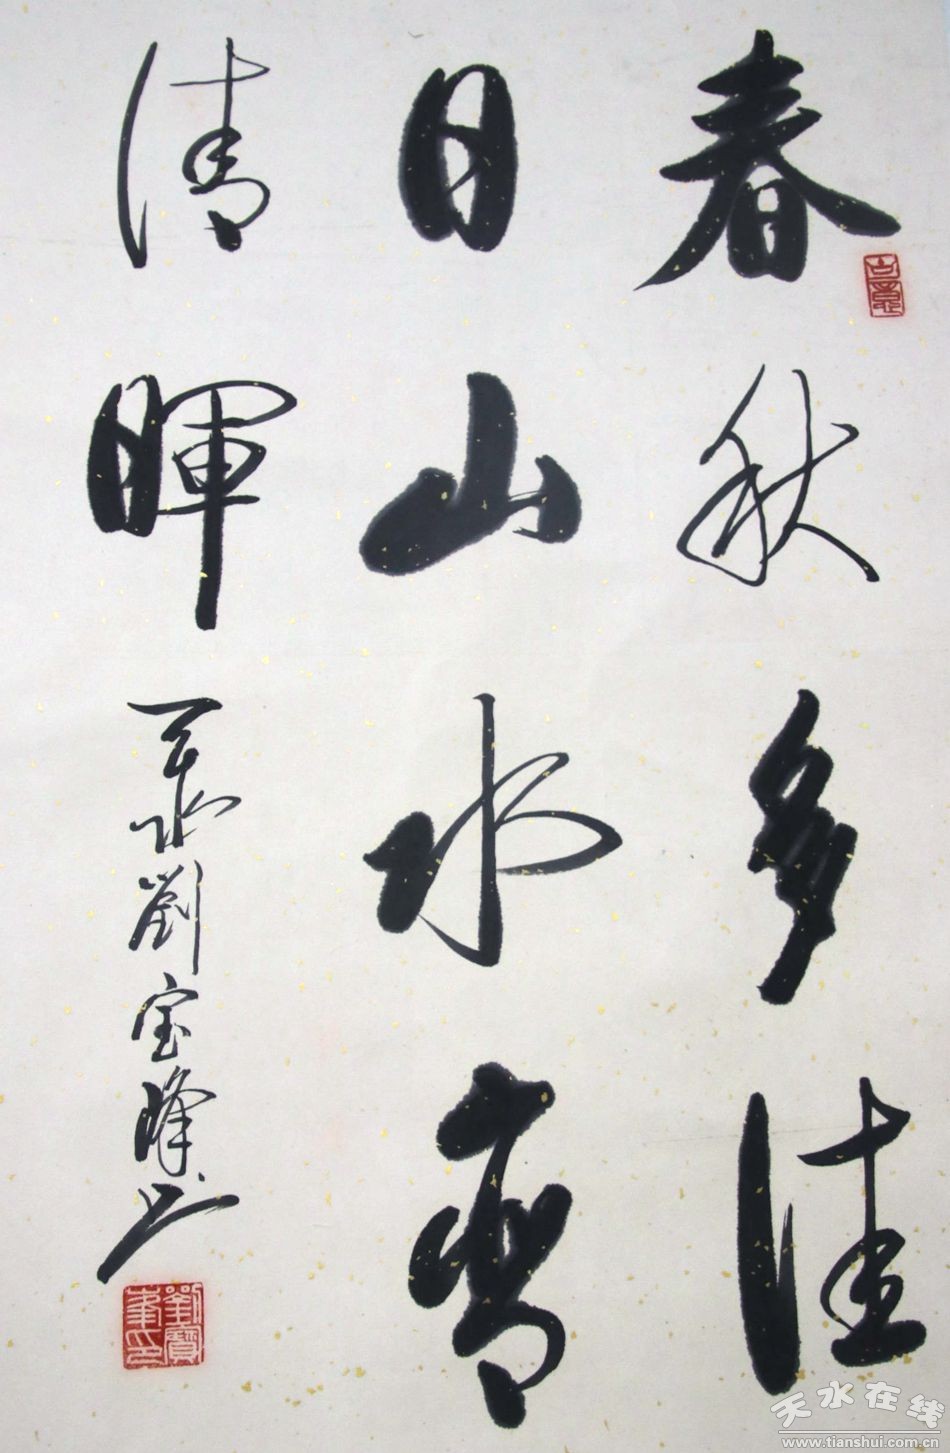 春秋多佳
日山水有
清暉
天水劉宝峰书
劉寶峯印
天水在线
www.tianshui.com.cn